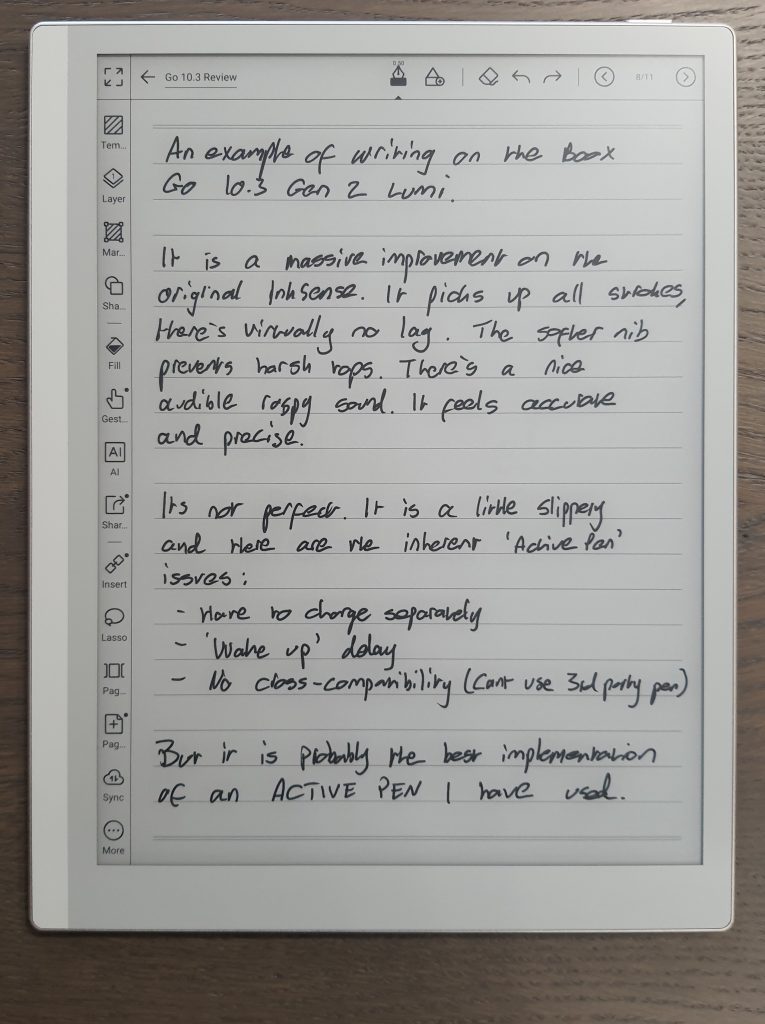 Go 10.3 Review
0.50
8/11
Tem...
Layer
Mar...
Sha...
Fill
Gest...
AI
AI
Shar...
Insert
Lasso
Pag...
Pag...
Sync
More
An example of writing on the Boox
Go 10.3 Gen 2 Lumi.
It is a massive improvement on the
original InkSense. It picks up all strokes,
there's virtually no lag. The softer nib
prevents harsh taps. There's a nice
audible raspy sound. It feels accurate
and precise.
Its not perfect. It is a little slippery
and there are the inherent 'Active Pen'
issues:
- Have to charge separately
- 'Wake up' delay
- No class-compatibility (Cant use 3rd party pen)
But it is probably the best implementation
of an ACTIVE PEN I have used.